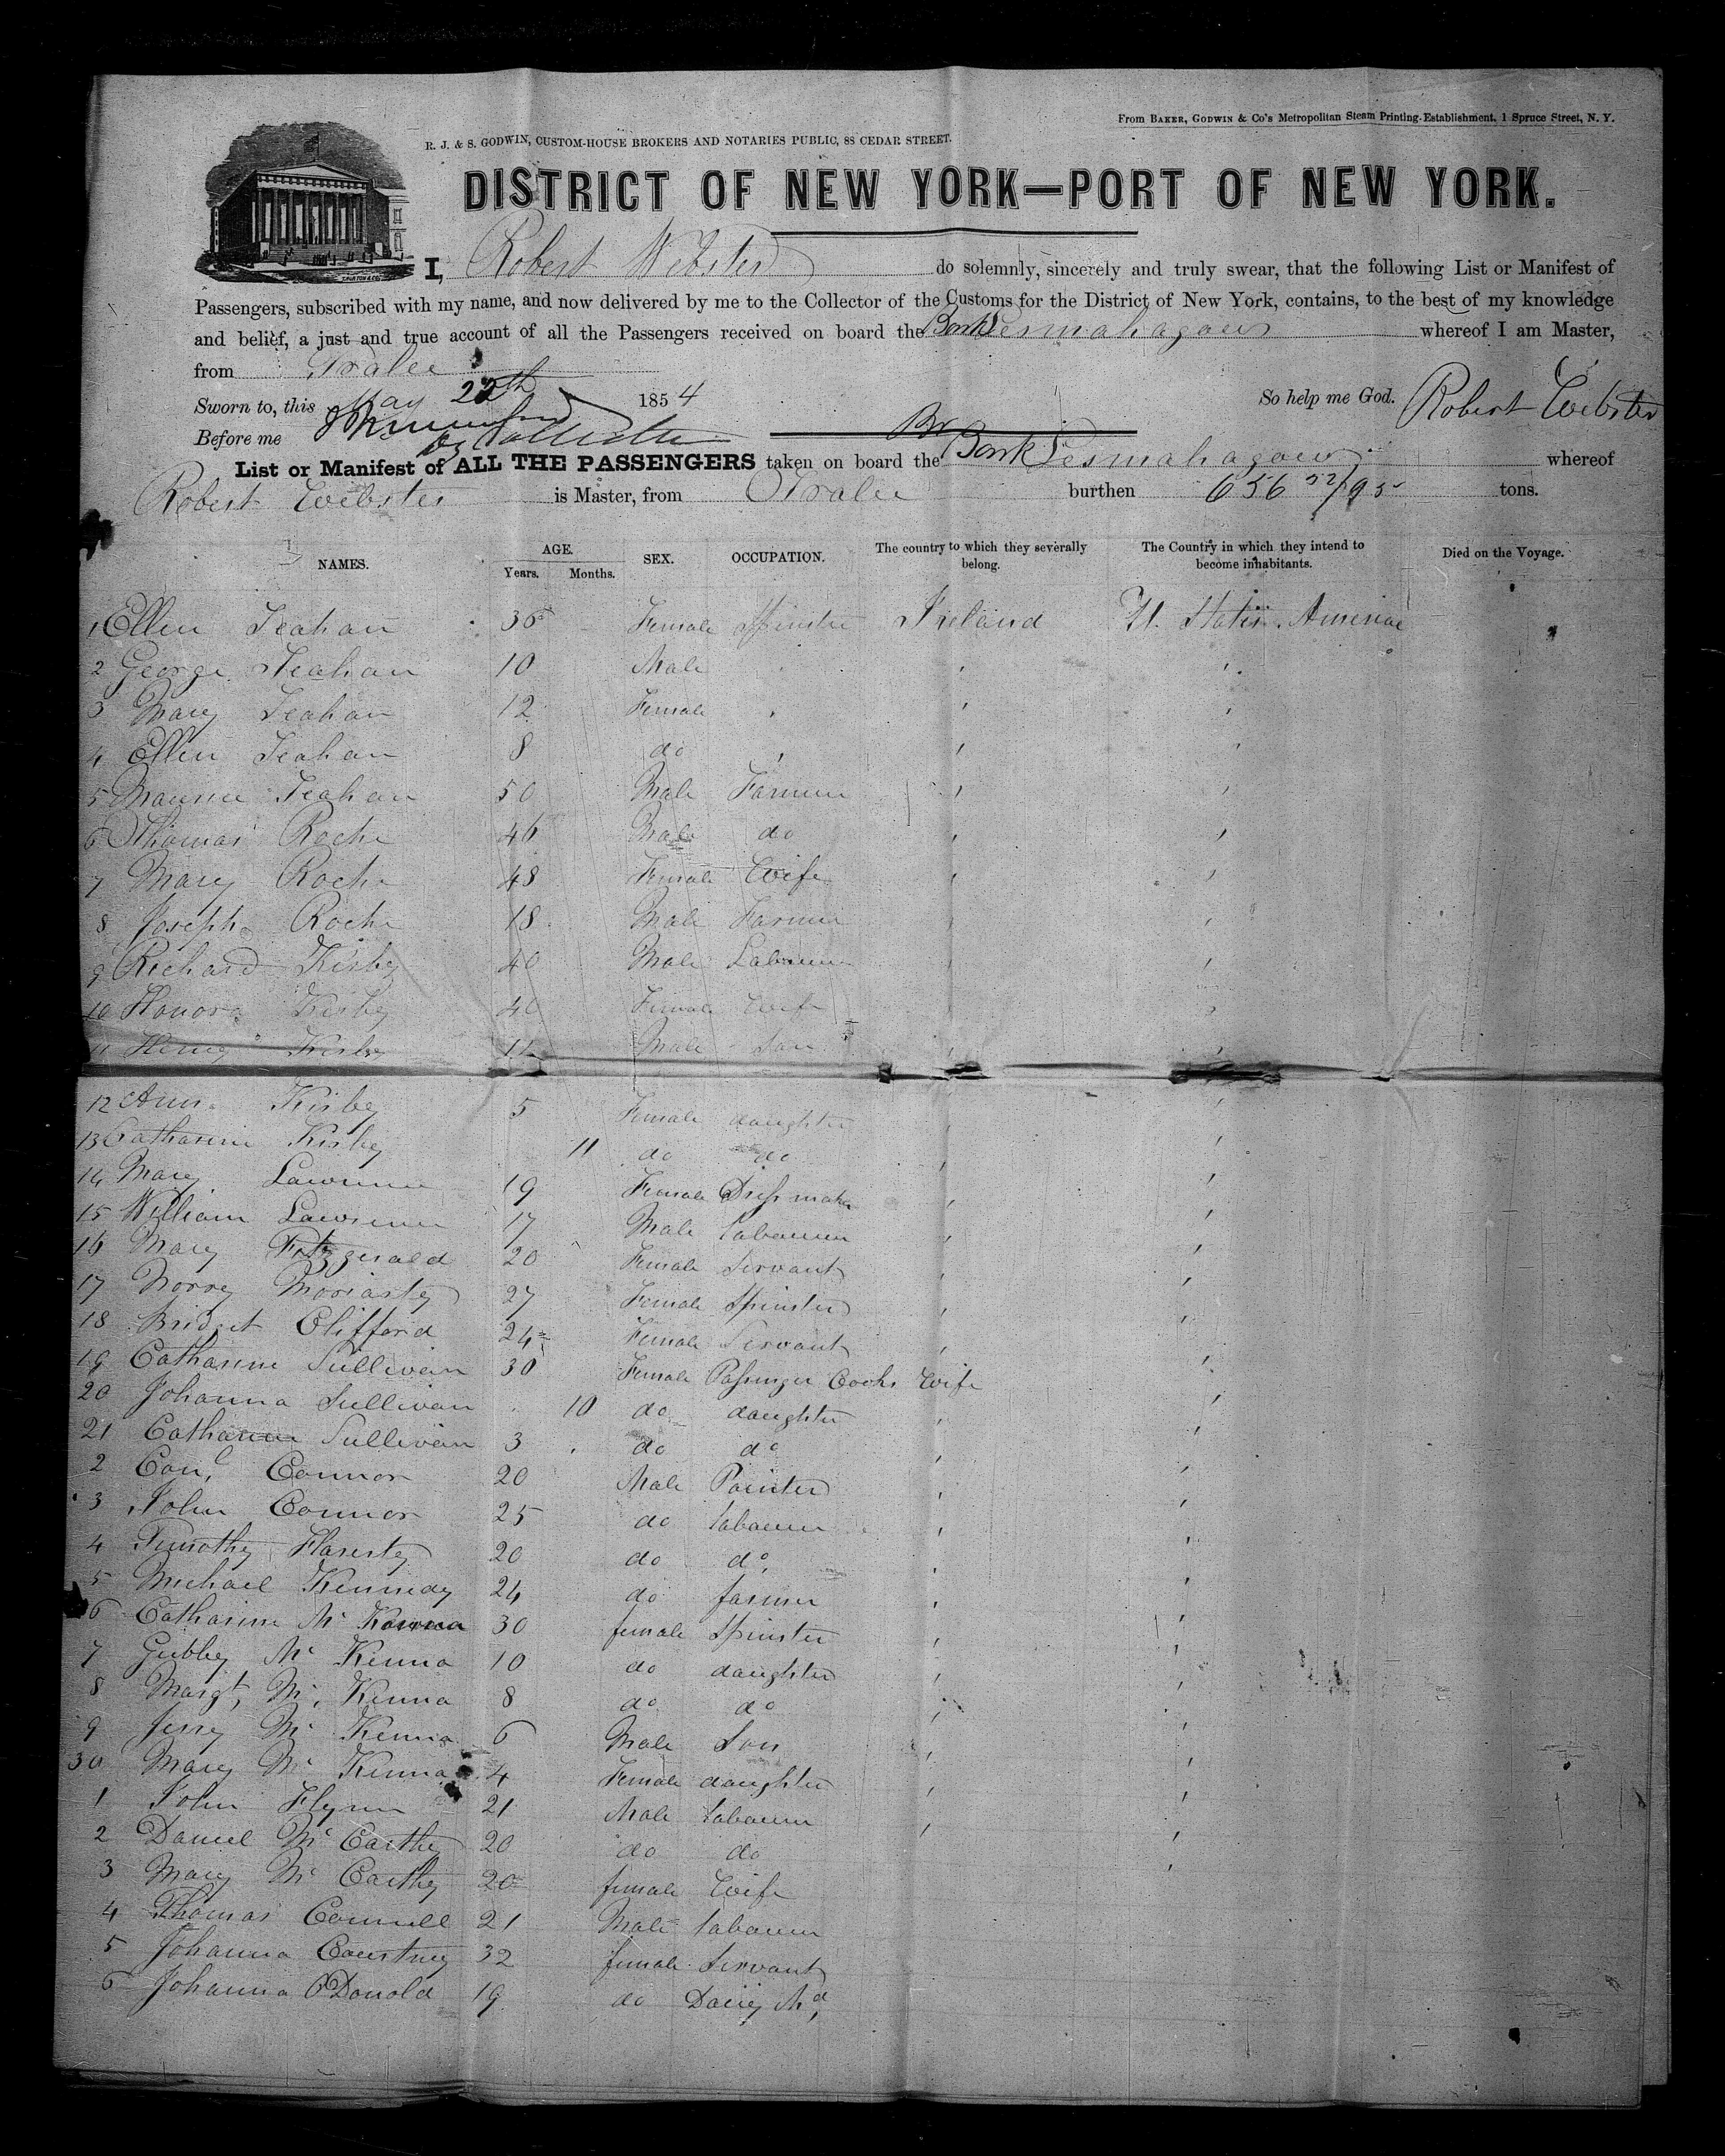 From BAKER, GODWIN & Co's Metropolitan Steam Printing Establishment, 1 Spruce Street, N. Y.
R. J. & S. GODWIN, CUSTOM-HOUSE BROKERS AND NOTARIES PUBLIC, 88 CEDAR STREET.
DISTRICT OF NEW YORK—PORT OF NEW YORK.
I, Robert Webster do solemnly, sincerely and truly swear, that the following List or Manifest of
Passengers, subscribed with my name, and now delivered by me to the Collector of the Customs for the District of New York, contains, to the best of my knowledge
and belief, a just and true account of all the Passengers received on board the Bark Lesmahagow whereof I am Master,
from Tralee
Sworn to, this May 22th 1854 So help me God. Robert Webster
Before me
List or Manifest of ALL THE PASSENGERS taken on board the Br Bark Lesmahagow whereof
Robert Webster is Master, from Tralee burthen 656 52/95 tons.
NAMES. AGE. Years. Months. SEX. OCCUPATION. The country to which they severally belong. The Country in which they intend to become inhabitants. Died on the Voyage.
1 Ellen Teahan 36 Female Spinster Ireland U. States America
2 George Teahan 10 Male
3 Mary Teahan 12 Female
4 Ellen Teahan 8 do
5 Maurice Teahan 50 Male Farmer
6 Thomas Roche 46 Male do
7 Mary Roche 48 Female Wife
8 Joseph Roche 18 Male Farmer
9 Richard Kirby 40 Male Labourer
10 Honora Kirby 40 Female Wife
11 Henry Kirby Male Son
12 Ann Kirby 5 Female daughter
13 Catharine Kirby 11 do do
14 Mary Lawrence 19 Female Dress maker
15 William Lawrence 17 Male labourer
16 Mary Fitzgerald 20 Female Servant
17 Norry Moriarty 27 Female Spinster
18 Bridget Clifford 24 Female Servant
19 Catharine Sullivan 30 Female Passenger Cooks Wife
20 Johanna Sullivan 10 do daughter
21 Catharine Sullivan 3 do do
2 Con, Connor 20 Male Painter
3 John Connor 25 do labourer
4 Timothy Flaherty 20 do do
5 Michael Kennedy 24 do farmer
6 Catharine Mc Kenna 30 female Spinster
7 Gubby Mc Kenna 10 do daughter
8 Margt, Mc, Kenna 8 do do
9 Jerry Mc Kenna 6 Male Son
30 Mary Mc Kenna 4 Female daughter
1 John Flynn 21 Male labourer
2 Daniel Mc Carthy 20 do do
3 Mary Mc Carthy 20 female Wife
4 Thomas Connell 21 Male labourer
5 Johanna Courtney 32 female Servant
6 Johanna O'Donold 19 do Dairy Md,